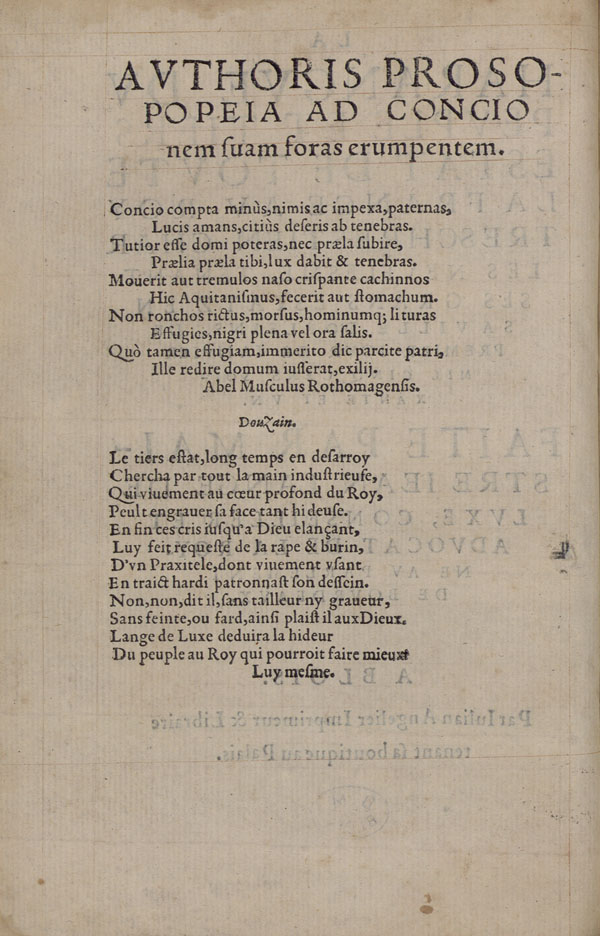 AVTHORIS PROSO-
POPEIA AD CONCIO
nem ſuam foras erumpentem.
Concio compta minùs,nimis ac impexa,paternas,
Lucis amans,citiùs deſeris ab tenebras.
Tutior eſſe domi poteras,nec præla ſubire,
Prælia præla tibi,lux dabit & tenebras.
Mouerit aut tremulos naſo criſpante cachinnos
Hic Aquitaniſmus,fecerit aut ſtomachum.
Non ronchos rictus,morſus,hominumq; lituras
Effugies,nigri plena vel ora ſalis.
Quò tamen effugiam,immerito dic parcite patri,
Ille redire domum iuſſerat,exilij.
Abel Muſculus Rothomagenſis.
Douzain.
Le tiers eſtat,long temps en deſarroy
Chercha par tout la main induſtrieuſe,
Qui viuement au cœur profond du Roy,
Peult engrauer ſa face tant hideuſe.
En fin ces cris iuſqu'a Dieu elançant,
Luy feit requeſte de la rape & burin,
D'vn Praxitele,dont viuement vſant
En traict hardi patronnaſt ſon deſſein.
Non,non,dit il,ſans tailleur ny graueur,
Sans feinte,ou fard,ainſi plaiſt il aux Dieux.
Lange de Luxe deduira la hideur
Du peuple au Roy qui pourroit faire mieux
Luy meſme.